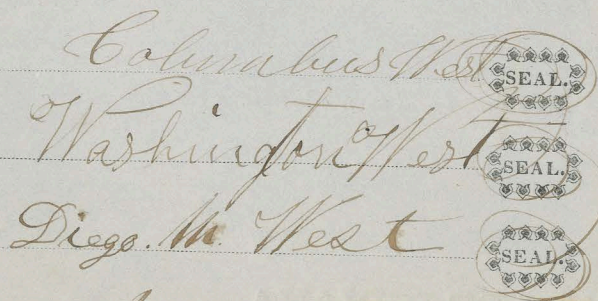 Columbus West SEAL.
Washington West SEAL.
Diego. M. West SEAL.